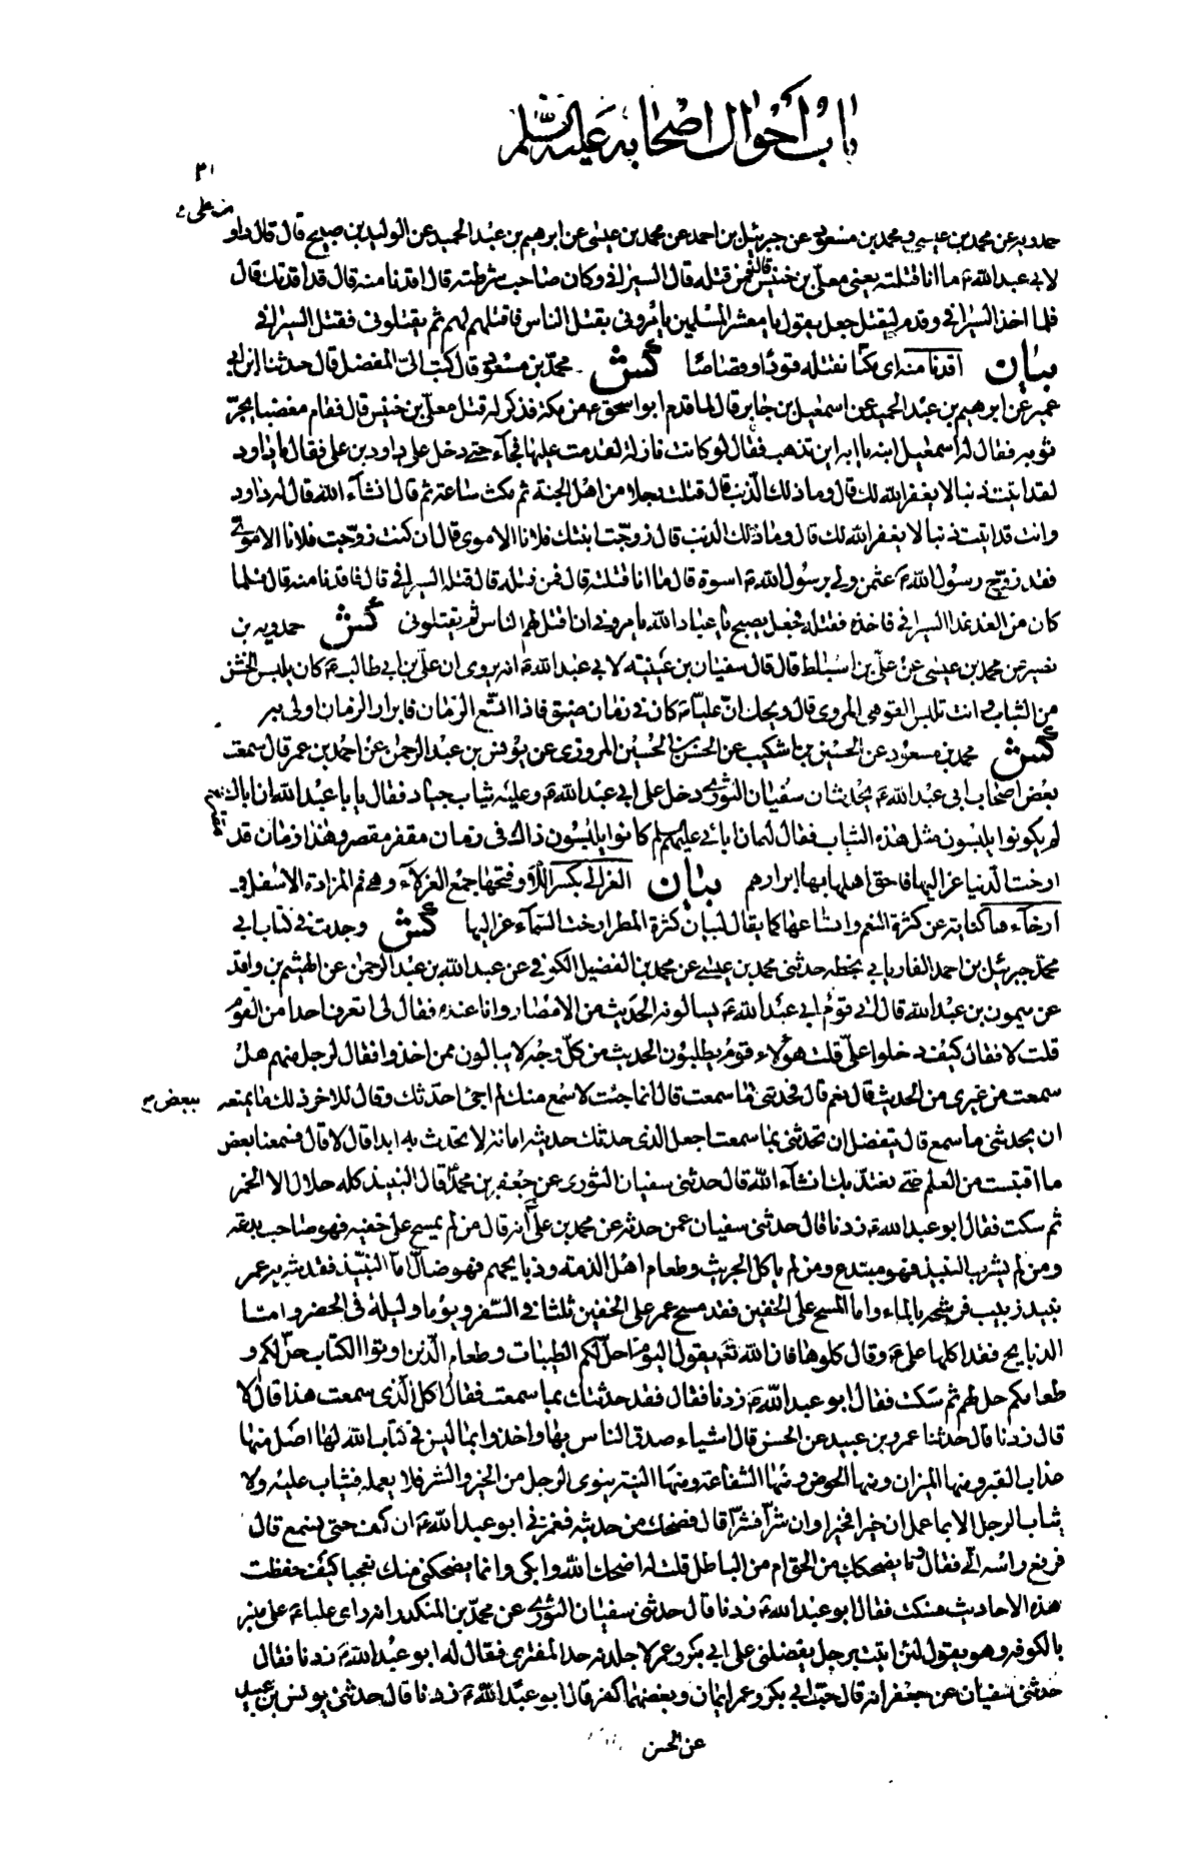 باب أحوال اصحابه عليه السلم
٢١
بن على
حمدويه عن محمد بن عيسى ومحمد بن مسعود عن جبرئيل بن احمد عن محمد بن عيسى عن ابرهيم بن عبد الحميد عن الوليد بن صبيح قال قال داود
لابي عبد الله ع ما انا قتلته يعني معلى بن خنيس قال فمن قتله قال السيرافي وكان صاحب شرطته قال اقدنا منه قال قد اقدتك قال
فلما اخذ السيرافي وقدم ليقتل جعل يقول يا معشر المسلمين يامروني بقتل الناس فاقتلهم لهم ثم يقتلوني فقتل السيرافي
بيان اقدنا منه اى مكنا نقتله قودا وقصاصا كش محمد بن مسعود قال كتب الىّ الفضل قال حدثنا ابن ابي
عمير عن ابرهيم بن عبد الحميد عن اسمعيل بن جابر قال لما قدم ابو اسحق ع من مكة فذكر له قتل معلى بن خنيس قال فقام مغضبا يجرّ
ثوبه فقال له اسمعيل ابنه يا ابه اين تذهب فقال لو كانت نازلة لقدمت عليها فجآء حتى دخل على داود بن على فقال يا داود
لقد اتيت ذنبا لا يغفر الله لك قال وما ذلك الذنب قال قتلت رجلا من اهل الجنة ثم مكث ساعة ثم قال انشآء الله قال له داود
وانت قد اتيت ذنبا لا يغفر الله لك قال وما ذلك الذنب قال زوجت ابنتك فلانا الاموى قال ان كنت زوجت فلانا الاموىّ
فقد زوج رسول الله ص عثمن ولي برسول الله ص اسوة قال ما انا قتلته قال فمن قتله قال قتله السيرافي قال فاقدنا منه قال فلما
كان من الغد غدا السيرافي فاخذه فقتله فجعل يصيح يا عباد الله يامروني ان اقتل لهم الناس ثم يقتلوني كش حمدويه بن
نصير عن محمد بن عيسى عن على بن اسباط قال قال سفيان بن عيينه لابي عبد الله ع انه يروى ان على بن ابي طالب ع كان يلبس الخشن
من الثياب وانت تلبس القوهى المروى قال ويحك انّ عليّا ع كان في زمان ضيق فاذا اتسع الزمان فابرار الزمان اولى به
كش محمد بن مسعود عن الحسين بن اشكيب عن الحسن بن الحسين المروزى عن يونس بن عبد الرحمن عن احمد بن عمر قال سمعت
بعض اصحاب ابى عبد الله ع يحدث ان سفيان الثورى دخل على ابي عبد الله ع وعليه ثياب جياد فقال يا با عبد الله ان اباك
لم يكونوا يلبسون مثل هذه الثياب فقال له ان ابائي عليهم السلم كانوا يلبسون ذاك فى زمان مقفر مقصر وهذا زمان قد
ارخت الدنيا عزاليها فاحق اهلها بها ابرارهم بيان العزالي بكسر اللام وفتحها جمع العزلآء وهي فم المزادة الاسفل و
ارخآءها كناية عن كثرة النعم واتساعها كما يقال لبيان كثرة المطر ارخت السمآء عزاليها كش وجدت في كتاب ابي
محمد جبرئيل بن احمد الفاريابي بخطه حدثنى محمد بن عيسى عن محمد بن الفضيل الكوفي عن عبد الله بن عبد الرحمن عن الهيثم بن واقد
عن ميمون بن عبد الله قال اتى قوم ابي عبد الله ع يسالونه الحديث من الامصار وانا عنده فقال لى اتعرف احدا من القوم
قلت لا فقال كيف دخلوا علىّ قلت هؤلاء قوم يطلبون الحديث من كل وجه لا يبالون ممن اخذوا فقال لرجل منهم هل
سمعت من غيرى من الحديث قال نعم قال فحدثني ببعض ما سمعت قال انما جئت لاسمع منك لم اجئ احدثك وقال للاخر ذلك ما يمنعه
ان يحدثنى ما سمع قال تتفضل ان تحدثنى بما سمعت اجعل الذى حدثك حديثه امانة لا تحدث به ابدا قال لا قال فسمعنا بعض
ما اقتبست من العلم حتى نعتدّ بك انشآء الله قال حدثنى سفيان الثورى عن جعفر بن محمد قال النبيذ كله حلال الا الخمر
ثم سكت فقال ابو عبد الله ع زدنا قال حدثنى سفيان عمن حدثه عن محمد بن على انه قال من لم يمسح على خفيه فهو صاحب بدعه
ومن لم يشرب النبيذ فهو مبتدع ومن لم ياكل الجريث وطعام اهل الذمة وذبايحهم فهو ضالّ اما النبيذ فقد شربه عمر
نبيذ زبيب فرشحه بالماء واما المسح على الخفين فقد مسح عمر على الخفين ثلثا في السفر ويوما وليلة فى الحضر واما
الذبايح فقد اكلها على ع وقال كلوها فان الله تعالى يقول اليوم احل لكم الطيبات وطعام الذين اوتوا الكتاب حلّ لكم و
طعامكم حل لهم ثم سكت فقال ابو عبد الله ع زدنا فقال فقد حدثتك بما سمعت فقال اكل الذى سمعت هذا قال لا
قال زدنا قال حدثنا عمرو بن عبيد عن الحسن قال اشياء صدق الناس بها واخذوا بما ليس فى كتاب الله لها اصل منها
عذاب القبر ومنها الميزان ومنها الحوض ومنها الشفاعة ومنها النية ينوى الرجل من الخير والشر فلا يعمله فيثاب عليه ولا
يثاب الرجل الا بما عمل ان خيرا فخيرا وان شرا فشرّا قال فضحكت من حديثه فغمزنى ابو عبد الله ع ان كف حتى نسمع قال
فرفع رأسه الىّ فقال وما يضحكك من الحق ام من الباطل قلت له اصلحك الله وابكى وانما يضحكنى منك تعجبا كيف حفظت
هذه الاحاديث فسكت فقال ابو عبد الله ع زدنا قال حدثنى سفيان الثورى عن محمد بن المنكدر انه راى عليا ع على منبر
بالكوفه وهو يقول لئن اتيت برجل يفضلنى على ابى بكر وعمر لاجلدنه حد المفترى فقال له ابو عبد الله ع زدنا فقال
حدثنى سفيان عن جعفر انه قال حبّ ابي بكر وعمر ايمان وبغضهما كفر قال ابو عبد الله ع زدنا قال حدثنى يونس بن عبيد
عن الحسن